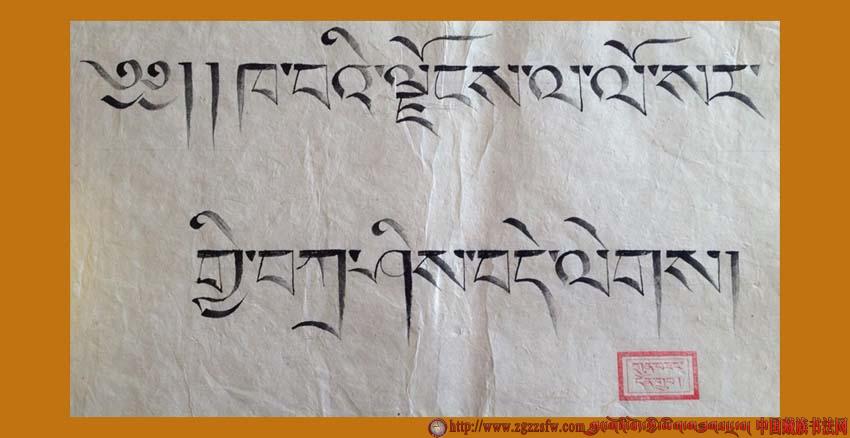 ༄༅།།ཁ་བའི་ལྗོངས་ལ་ལོ་སར་
གྱི་བཀྲ་ཤིས་བདེ་ལེགས།
http://www.zgzzsfw.com 中国藏族书法网